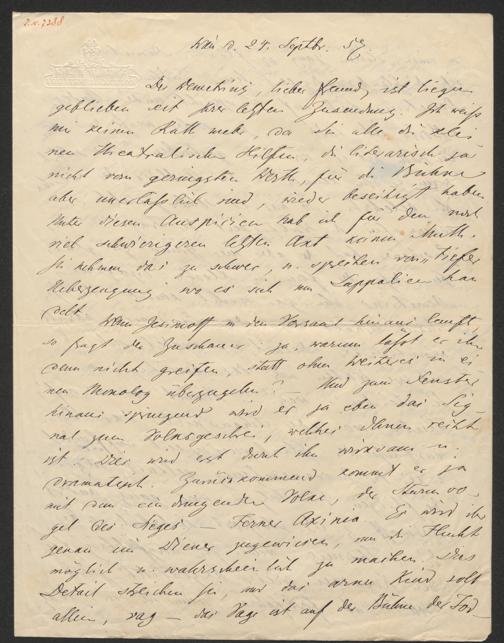 I.N. 7288
Wien d. 24. Septbr. 57
Der Demetrius, lieber Freund, ist liegen
geblieben seit Ihrer letzten Zusendung. Ich weiß
mir keinen Rath mehr, da Sie alle die klei
nen theatralischen Hilfen, die literarisch ja
nicht vom geringsten Werth, für die Bühne
aber unerlaßlich sind, wieder beseitigt haben
Unter diesen Auspicien hab ich für den noch
viel schwierigeren letzten Act keinen Muth.
Sie nehmen das zu schwer, u. sprechen von tiefer
Ueberzeugung wo es sich um Lappalien han
delt.
Wenn in den Vorsaal hinaus läuft,
so fragt der Zuschauer: ja, warum laßt er ihn
denn nicht greifen statt ohne Weiteres in ei
nen Monolog überzugehen? Und zum Fenster
hinaus springend wird er ja eben das Sig-
nal zum Volksgeschrei, welches daran reiht
ist. Dies wird erst durch ihn wirksam u.
dramatisch. Zurückkommend kommt er ja
mit dem eindringenden Volke, der Sturmvo-
gel des Sieges – Ferner Axinia Es wird ihr
genau ein Diener zugewiesen, um die Flucht
möglich u. wahrscheinlich zu machen. Das
Detail streichen Sie, und das arme Kind soll
allein, vag – das Vage ist auf der Bühne der Tod